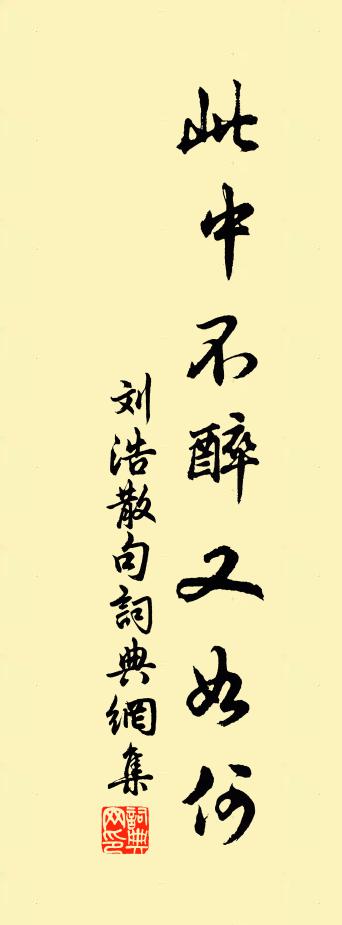 此中不醉又如何
刘浩散句詞典網集
詞典
网印